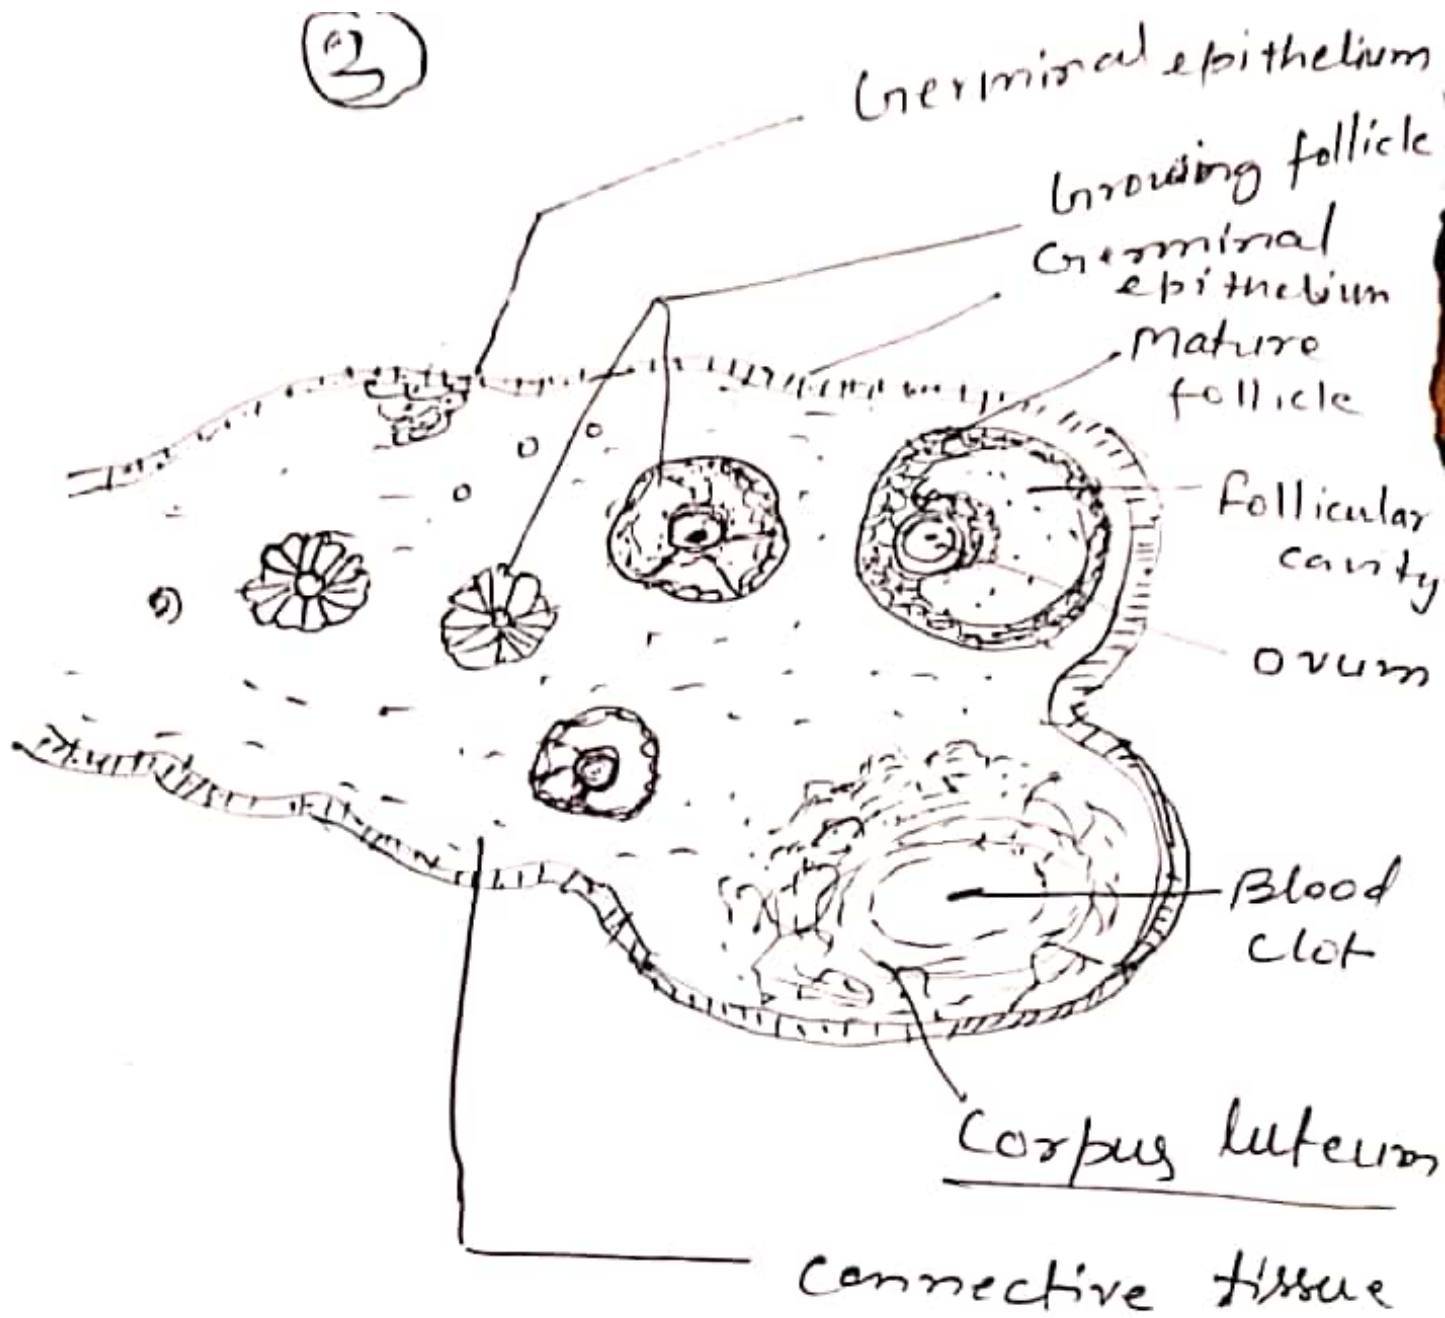 2
Germinal epithelium
Growing follicle
Germinal
epithelium
Mature
follicle
Follicular
cavity
Ovum
Blood
clot
Corpus luteum
Connective tissue